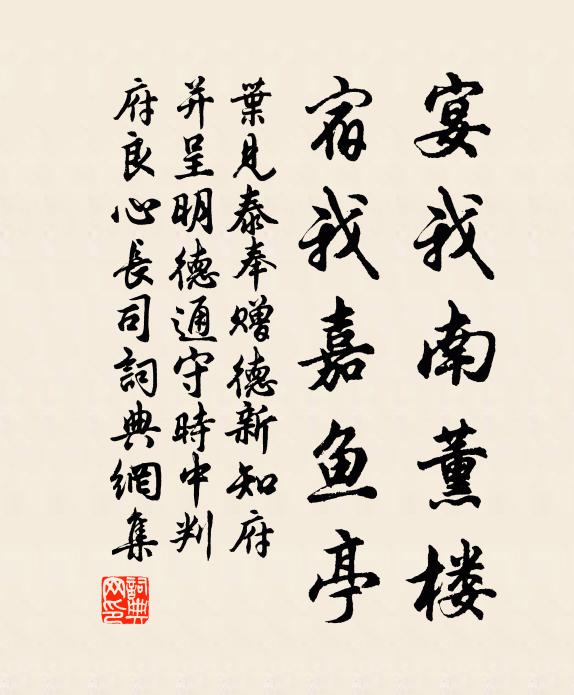 宴我南薰楼
宿我嘉鱼亭
葉見泰奉赠德新知府
并呈明德通守時中判
府良心長司詞典網集
詞典网印